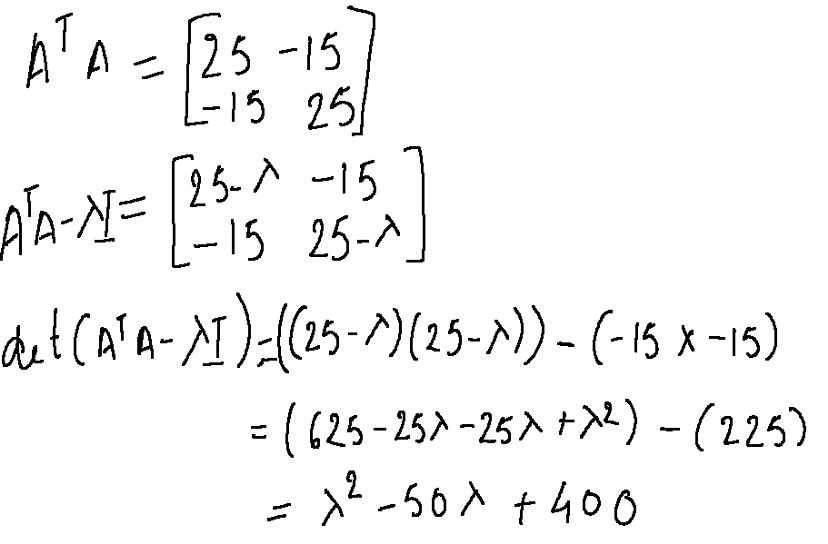 AᵀA = [25 -15
-15 25]
AᵀA-λI = [25-λ -15
-15 25-λ]
det(AᵀA-λI) = ((25-λ)(25-λ)) - (-15 x -15)
= (625-25λ-25λ+λ²) - (225)
= λ² - 50λ + 400